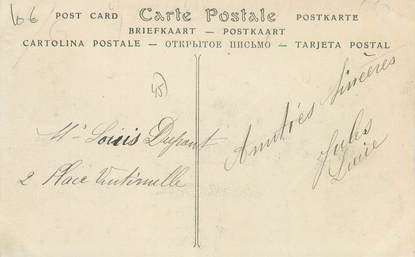 66
POST CARD Carte Postale POSTKARTE
BRIEFKAART — POSTKAART
CARTOLINA POSTALE — ОТКРЫТОЕ ПИСЬМО — TARJETA POSTAL
45
Mr Louis Dupont
2 Place Vintimille
Amitiés Sincères
Jules